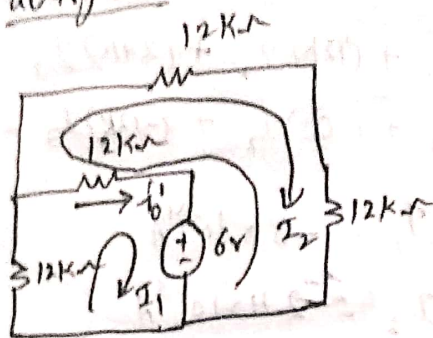 12KΩ
12KΩ
i₀'
12KΩ
6v
I₂
12KΩ
I₁